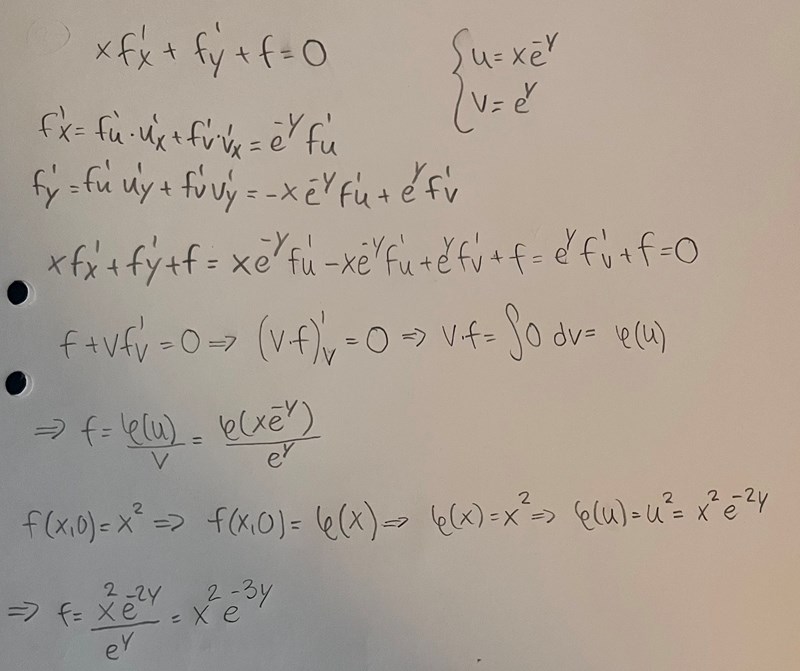 xf'x + f'y + f = 0
{ u = xe^-y
v = e^y
f'x = f'u · u'x + f'v · v'x = e^-y f'u
f'y = f'u u'y + f'v v'y = -xe^-y f'u + e^y f'v
xf'x + f'y + f = xe^-y f'u - xe^-y f'u + e^y f'v + f = e^y f'v + f = 0
f + vf'v = 0 ⇒ (v·f)'v = 0 ⇒ v·f = ∫0 dv = φ(u)
⇒ f = φ(u)/v = φ(xe^-y)/e^y
f(x,0) = x^2 ⇒ f(x,0) = φ(x) ⇒ φ(x) = x^2 ⇒ φ(u) = u^2 = x^2 e^-2y
⇒ f = x^2 e^-2y/e^y = x^2 e^-3y